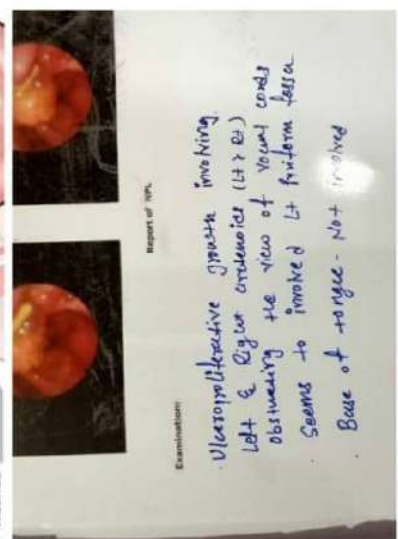 Report of NPL
Examination:
· Ulceroproliferative growth involving
Left & Right arytenoids (Lt > Rt)
obstructing the view of vocal cords
· Seems to involved Lt Pyriform fossa
· Base of tongue - Not involved